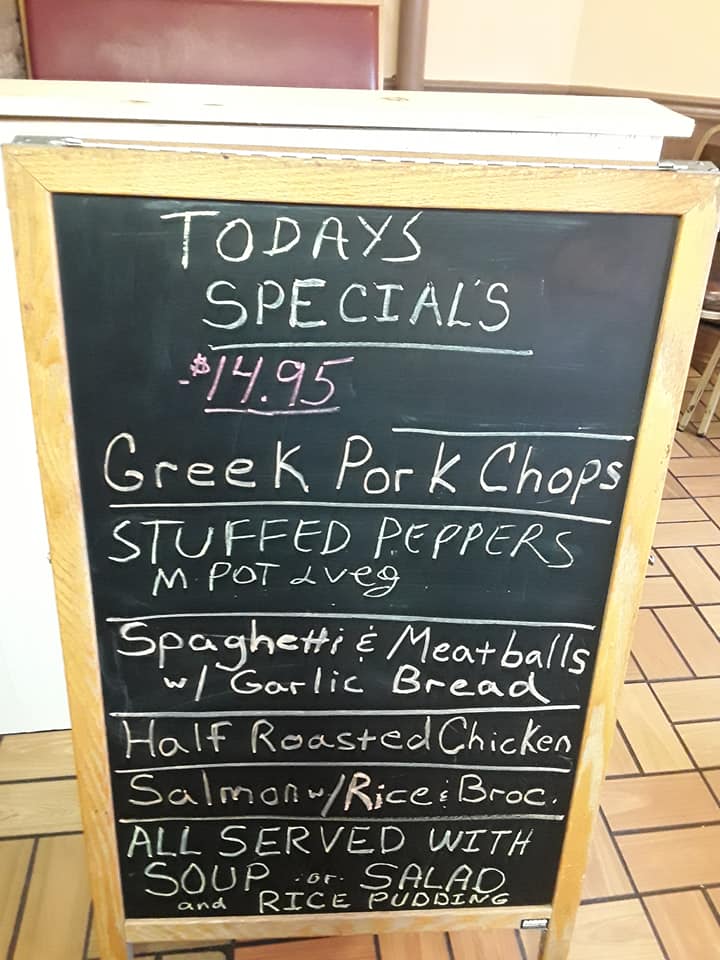 TODAYS
SPECIAL'S
-$14.95
Greek Pork Chops
STUFFED PEPPERS
M. POT & veg
Spaghetti & Meatballs
w/ Garlic Bread
Half Roasted Chicken
Salmon w/Rice & Broc.
ALL SERVED WITH
SOUP or SALAD
and RICE PUDDING